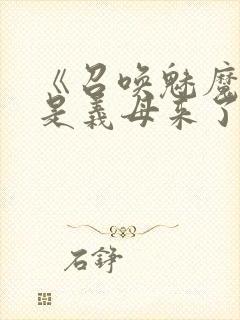 《召唤魅魔
是义母来了
石铮